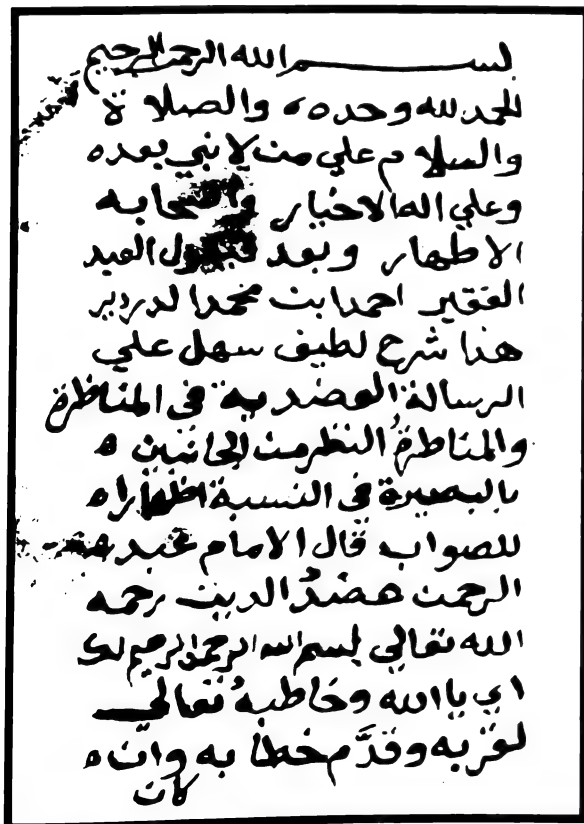 بسم الله الرحمن الرحيم
الحمد لله وحده والصلاة
والسلام علي من لا نبي بعده
وعلي اله الاخيار واصحابه
الاطهار وبعد فيقول العبد
الفقير احمد ابن محمد الدردير
هذا شرح لطيف سهل علي
الرسالة العضدية في المناظرة
والمناظرةُ النظر من الجانبين ه
بالبصيرة في النسبة اظهارا ه
للصواب قال الامام عبد
الرحمن عضدُ الدين رحمه
الله تعالي بسم الله الرحمن الرحيم لك
اي يا الله وخاطبهُ تعالي
لقربه وقدَّم خطابه وان ه
كان